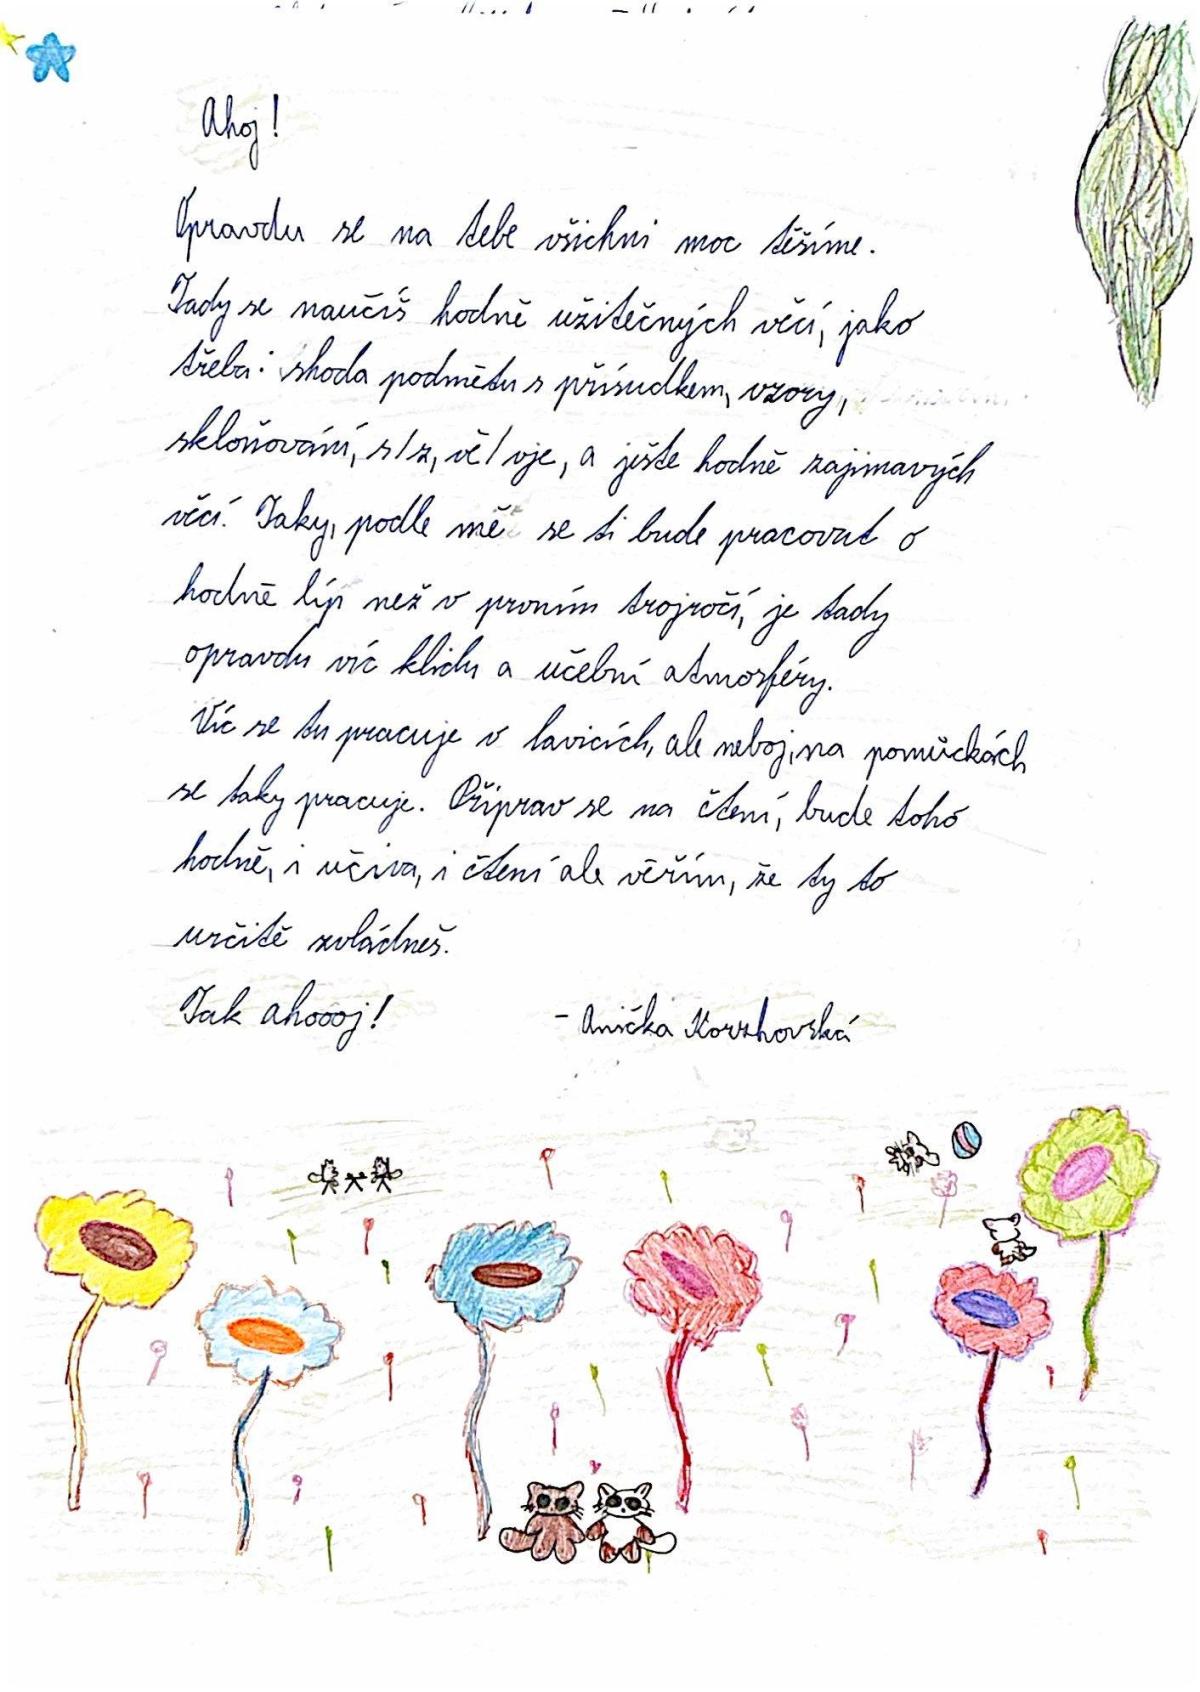 Ahoj!
Opravdu se na tebe všichni moc těšíme.
Tady se naučíš hodně užitečných věcí, jako
třeba: shoda podmětu s přísudkem, vzory,
skloňování, s/z, vě/vje, a ještě hodně zajimavých
věcí. Taky, podle mě se ti bude pracovat o
hodně líp než v prvním trojročí, je tady
opravdu víc klidu a učební atmosféry.
Víc se tu pracuje v lavicích, ale neboj, na pomůckách
se taky pracuje. Připrav se na čtení, bude toho
hodně, i učiva, i čtení ale věřím, že ty to
určitě zvládneš.
Tak ahoooj! - Anička